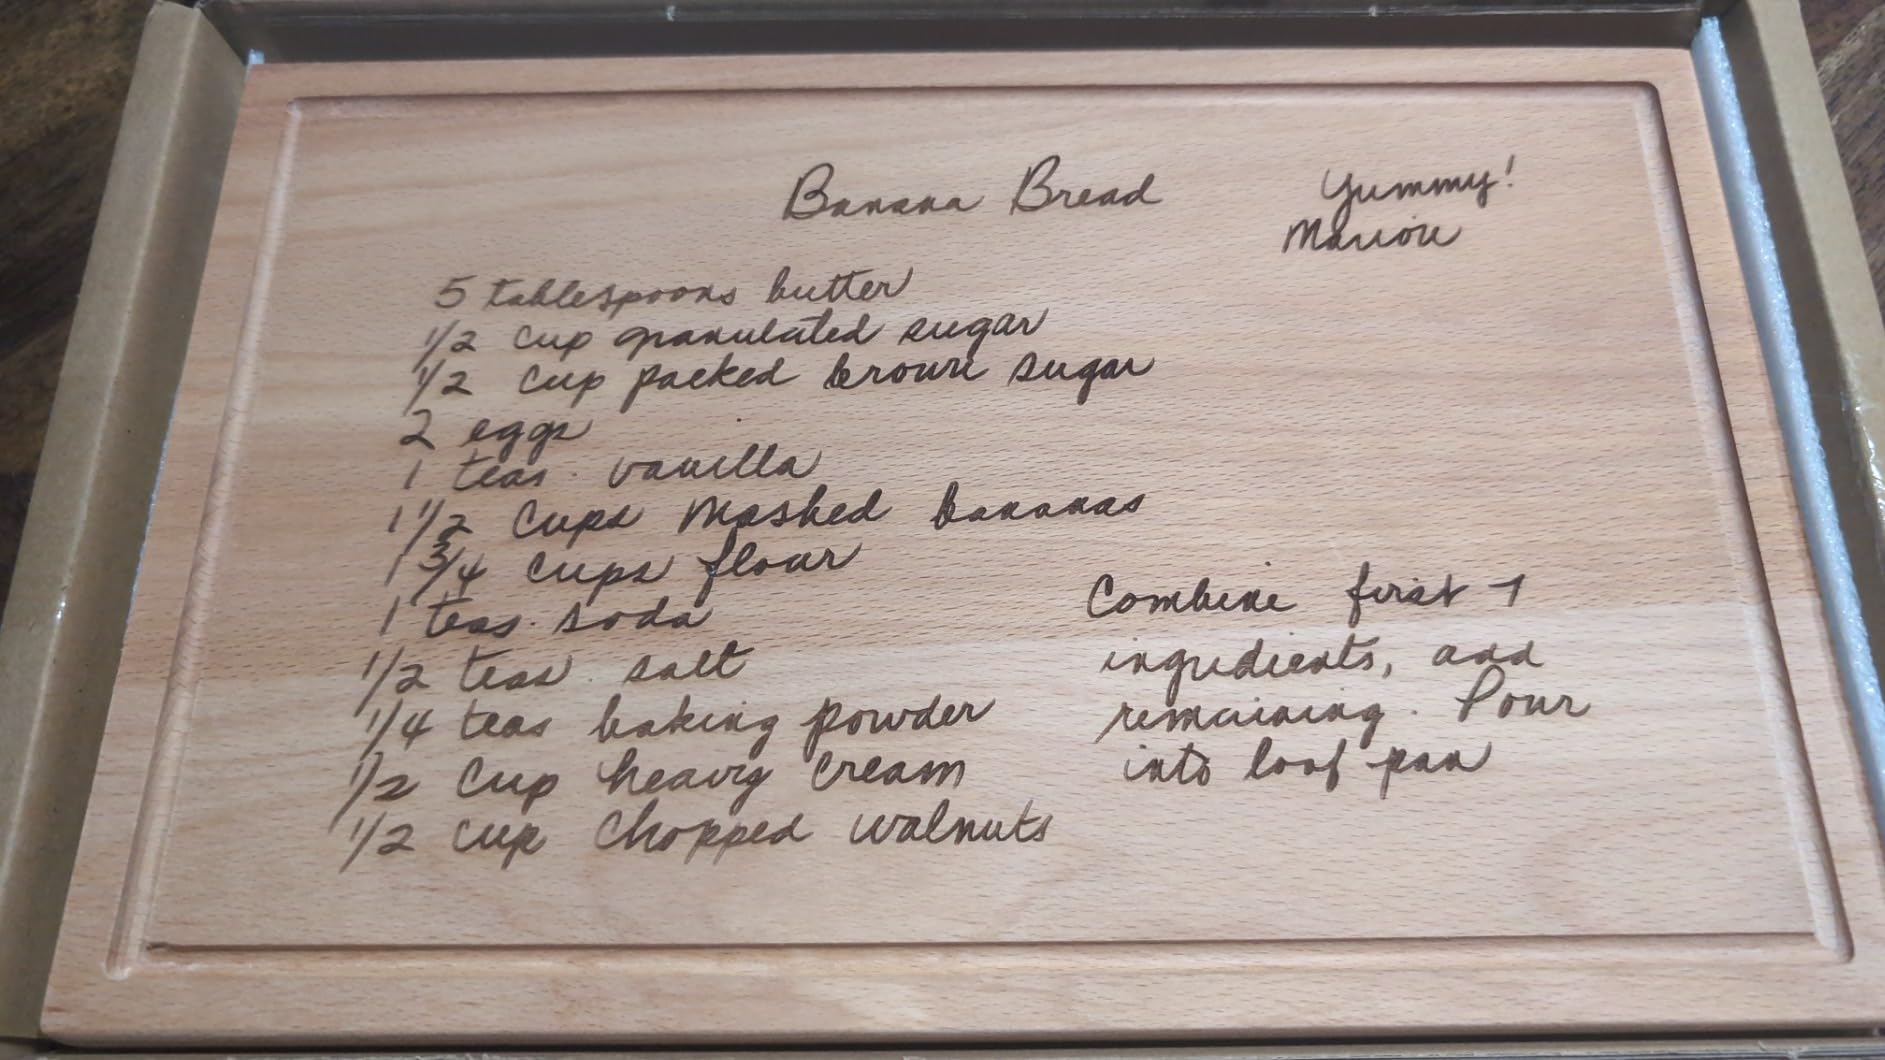 Banana Bread
Yummy!
Marion
5 tablespoons butter
1/2 cup granulated sugar
1/2 cup packed brown sugar
2 eggs
1 teas. vanilla
1 1/2 cups mashed bananas
1 3/4 cups flour
1 teas. soda
1/2 teas. salt
1/4 teas baking powder
1/2 cup heavy cream
1/2 cup chopped walnuts
Combine first 7
ingredients, add
remaining. Pour
into loaf pan